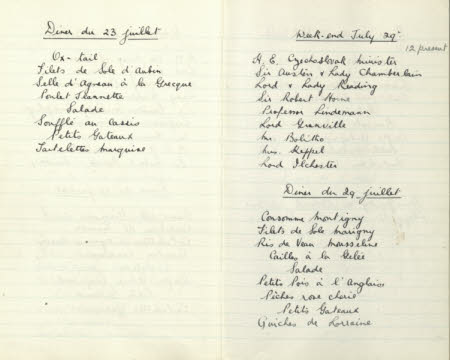 Diner du 23 juillet
Ox-tail
Filets de Sole d'Aubin
Selle d'Agneau à la Grecque
Poulet Jeannette
Salade
Soufflé au Cassis
Petits Gateaux
Tartelettes marquise
Week-end July 29th
12 present
H. E. Czechoslovak minister
Sir Austen & Lady Chamberlain
Lord & Lady Reading
Sir Robert Horne
Professor Lindemann
Lord Granville
Mr. Bolitho
Mrs. Keppel
Lord Ilchester
Diner du 29 juillet
Consomme Montigny
Filets de Sole Marigny
Ris de Veau Mousseline
Cailles à la Gelée
Salade
Petits Pois à l'Anglaise
Pêches rose cherie
Petits Gateaux
Quiches de Lorraine